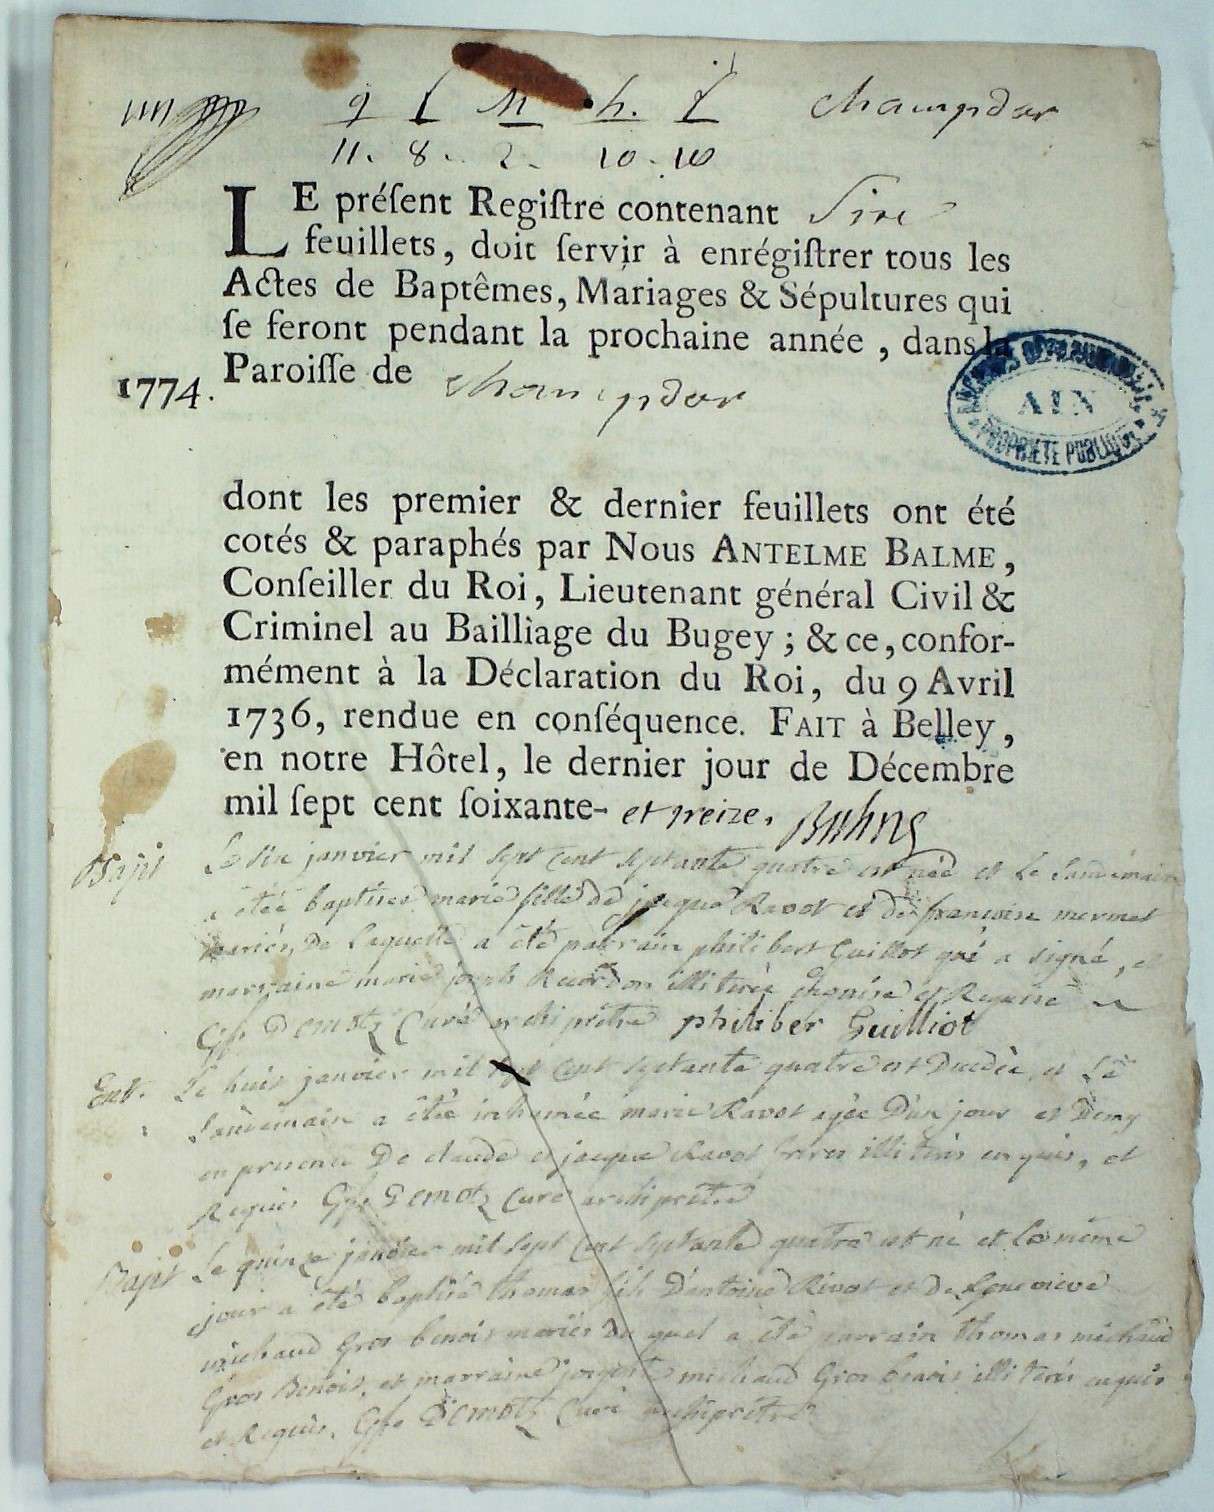 g f M h. f champdor
11. 8. 2. 10. 10
LE préſent Regiſtre contenant Sixe
feuillets, doit ſervir à enrégiſtrer tous les
Actes de Baptêmes, Mariages & Sépultures qui
ſe feront pendant la prochaine année, dans la
1774. Paroiſſe de champdor
ARCHIVES DÉPARTEMENTALES
AIN
PROPRIÉTÉ PUBLIQUE
dont les premier & dernier feuillets ont été
cotés & paraphés par Nous ANTELME BALME,
Conſeiller du Roi, Lieutenant général Civil &
Criminel au Bailliage du Bugey; & ce, confor-
mément à la Déclaration du Roi, du 9 Avril
1736, rendue en conſéquence. FAIT à Belley,
en notre Hôtel, le dernier jour de Décembre
mil ſept cent ſoixante- et treize.
Bapt Le six janvier mil sept cent septante quatre est née et le landemain
a étéé baptisée marie fille de jacque Ravot et de françoise mermet
mariés, de laquelle a été parrain philibert Guillot qui a signé, et
marraine marie joseph illitérée et Requise
Demotz Curé archiprêtre philiber Guilliot
Ent. Le huit janvier mil sept cent septante quatre est Decdée, et Le
landemain a étée inhumée marie Ravot agée D'un jour et Demy
en presence De claude et jacque Ravot freres illiterés enquis, et
Requis Demotz Curé archiprêtre
Bapt Le quinze janvier mil sept cent septante quatre est né et le même
jour a été baptisé thomas fils D'antoine Rivot et de Genevieve
michaud Gros benoit mariés du quel a été parrain thomas michaud
Gros Benoit, et marraine michaud Gros benoit illiterés enquis
et Requis. Demotz Curé archiprêtre